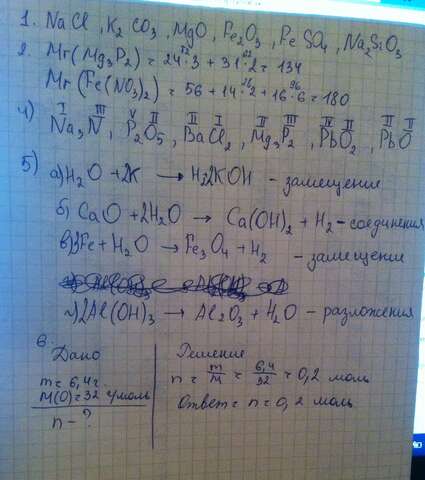 1. NaCl, K2CO3, MgO, Fe2O3, FeSO4, Na2SiO3
2. Mr(Mg3P2) = 24·3 + 31·2 = 134
72 62
Mr(Fe(NO3)2) = 56 + 14·2 + 16·6 = 180
28 96
4) Na3N, P2O5, BaCl2, Mg3P2, PbO2, PbO
I III V II II I II III IV II II II
5) а) H2O + 2K → H22KOH - замещение
б) CaO + 2H2O → Ca(OH)2 + H2 - соединения
в) 3Fe + H2O → Fe3O4 + H2 - замещение
г) 2Al(OH)3 → Al2O3 + H2O - разложения
6.
Дано
m = 6,4 г.
M(O) = 32 г/моль
n - ?
Решение
n = m/M = 6,4/32 = 0,2 моль
Ответ = n = 0,2 моль